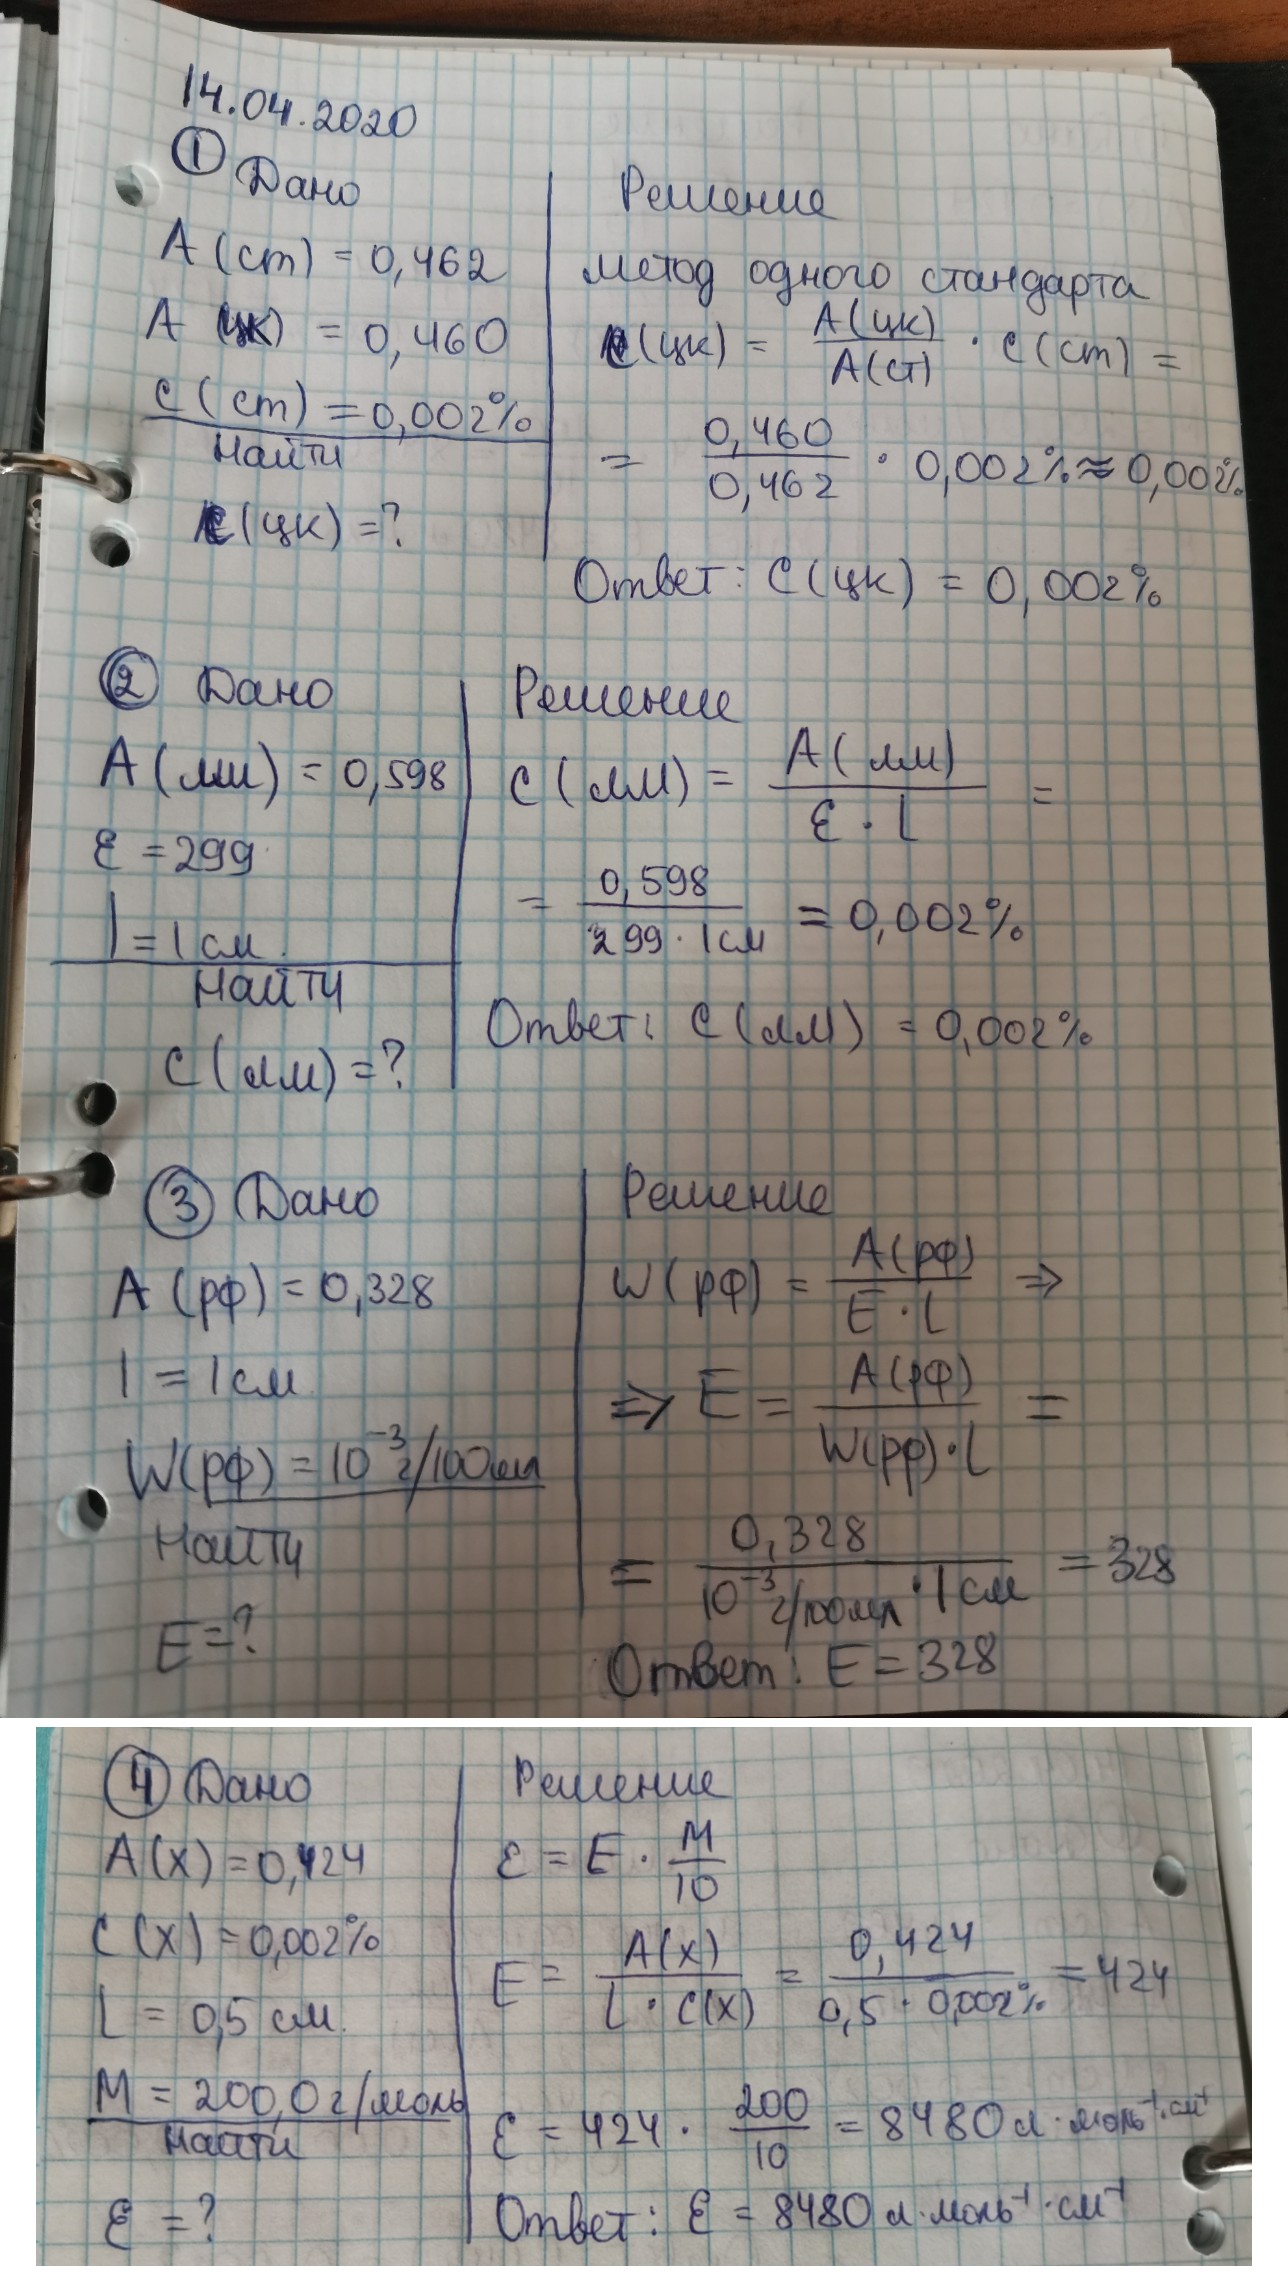 14.04.2020
① Дано
A (ст) = 0,462
A (цк) = 0,460
C (ст) = 0,002%
Найти
C (цк) = ?
Решение
метод одного стандарта
C (цк) = A(цк) / A(ст) · C (ст) =
= 0,460 / 0,462 · 0,002% ≈ 0,002%
Ответ: C (цк) = 0,002%
② Дано
A (лм) = 0,598
ε = 299
l = 1 см.
Найти
C (лм) = ?
Решение
C (лм) = A (лм) / ε · l =
= 0,598 / 299 · 1 см = 0,002%
Ответ: C (лм) = 0,002%
③ Дано
A (рф) = 0,328
l = 1 см
W(рф) = 10⁻³ г/100мл
Найти
E = ?
Решение
W (рф) = A(рф) / E · l ⇒
⇒ E = A(рф) / W(рф) · l =
= 0,328 / 10⁻³ г/100мл · 1 см = 328
Ответ: E = 328
④ Дано
A(x) = 0,424
C (x) = 0,002%
l = 0,5 см.
M = 200,0 г/моль
Найти
ε = ?
Решение
ε = E · M / 10
E = A(x) / l · C(x) = 0,424 / 0,5 · 0,002% = 424
ε = 424 · 200 / 10 = 8480 л · моль⁻¹ · см⁻¹
Ответ: ε = 8480 л · моль⁻¹ · см⁻¹